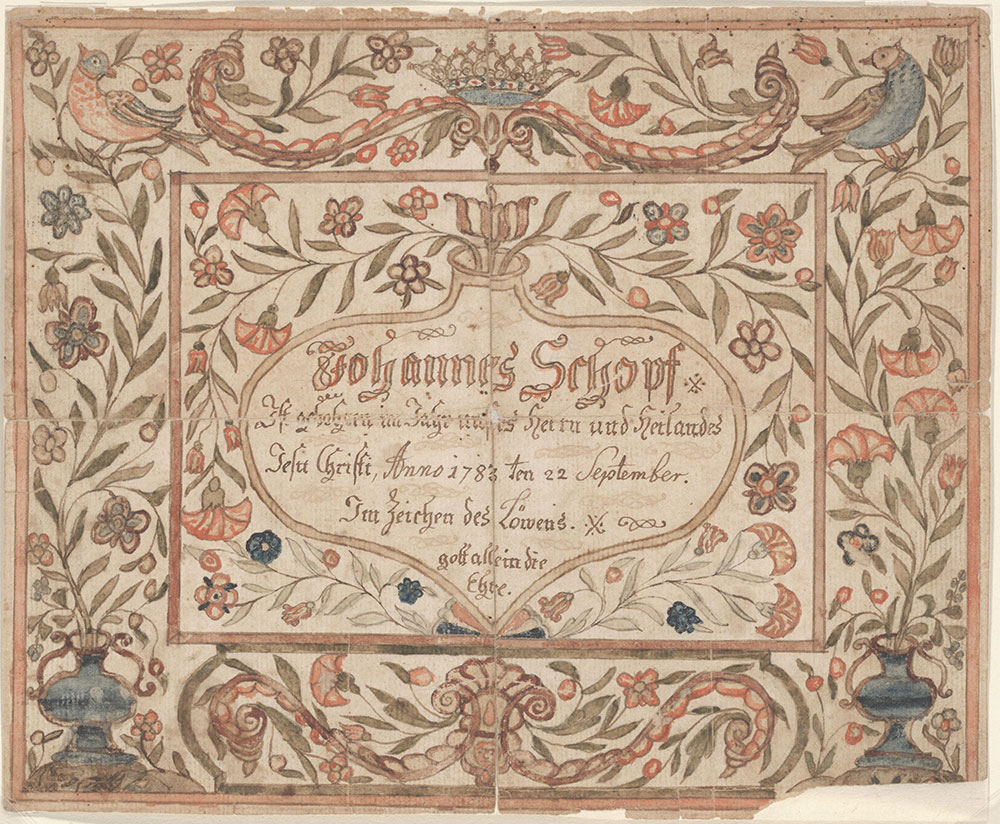 Johannes Schopf
Ist gebohren im Jahr unsrs Herrn und Heilandes
Jesu Christi, Anno 1783 ten 22 September.
Im Zeichen des Löwens.
gott allein die
Ehre.